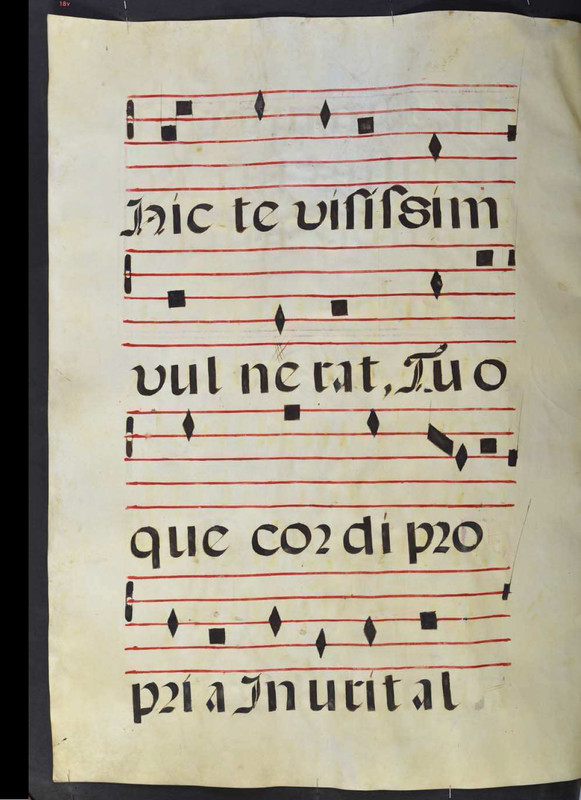 18v
Hic te viſiſsim
vul ne rat, Tu o
que coꝛ di pꝛo
pꝛi a In u rit al